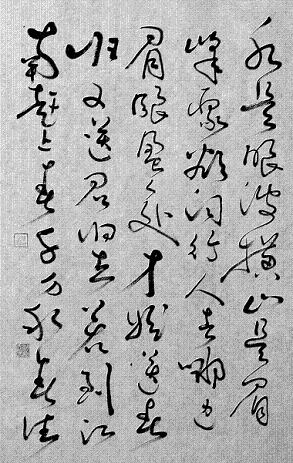 水是眼波横山是眉
峰聚欲问行人去哪边
眉眼盈盈处才始送春
归又送君归去若到江
南赶上春千万和春住